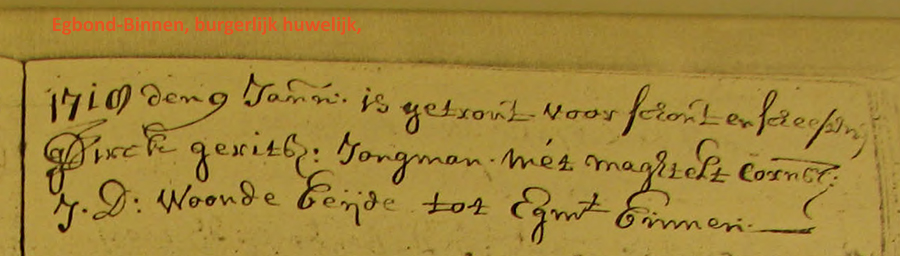 Egbond-Binnen, burgerlijk huwelijk,
1719 den 9 Jann. is getrout voor schout en scheepen
Dirck gerits: Jongman. met maghtelt Corns:
J. D: Woonde beijde tot Egmt binnen.